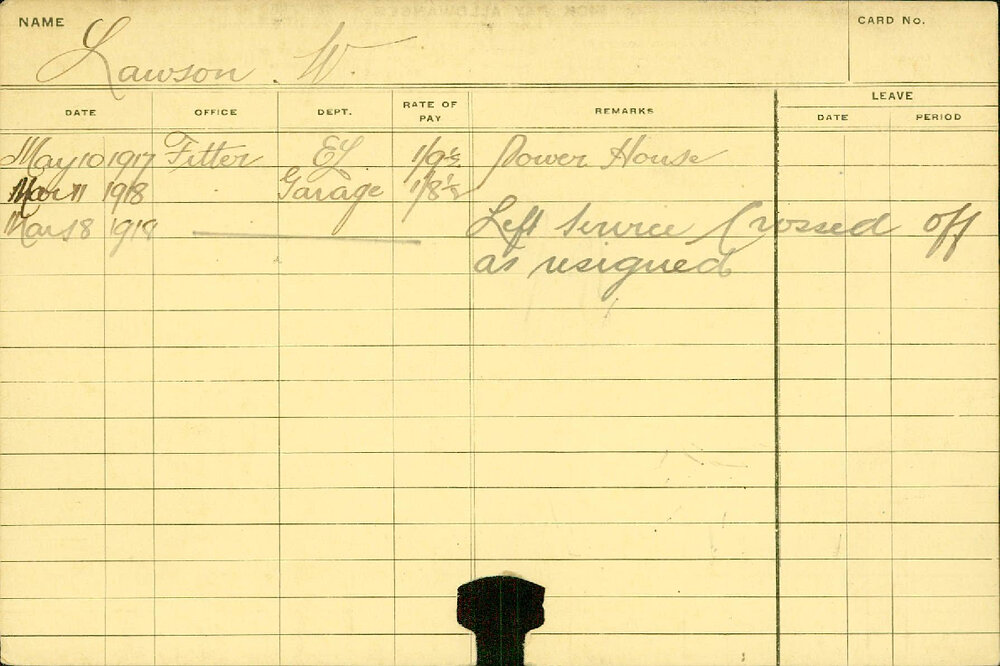 NAME
CARD No.
Lawson W.
DATE OFFICE DEPT. RATE OF PAY REMARKS LEAVE
DATE PERIOD
May 10 1917 Fitter EL 1/9½ Power House
Mar 11 1918 Garage 1/8½
Mar 18 1918 Left Service Crossed off
as resigned